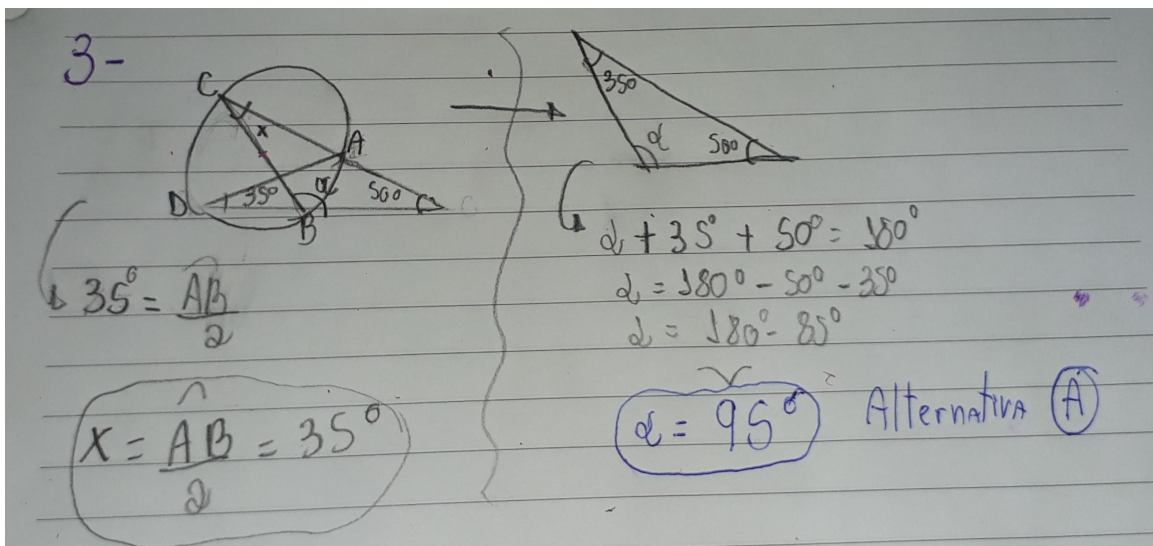 3-
C
x
A
35°
α
50°
D
B
35° = AB
2
x = AB = 35°
2
35°
α
50°
α + 35° + 50° = 180°
α = 180° - 50° - 35°
α = 180° - 85°
α = 95° Alternativa A